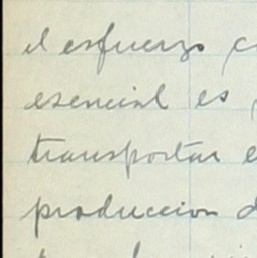 el esfuerzo
esencial es
transportar
produccion